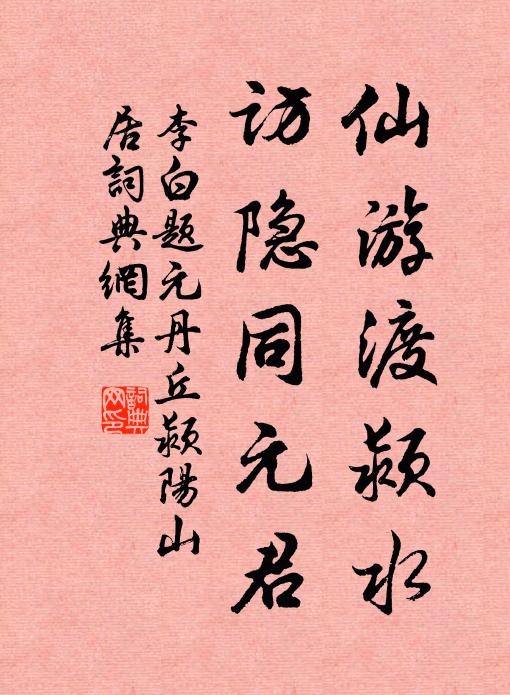 仙游渡颍水
访隐同元君
李白题元丹丘颍陽山
居詞典網集
詞典网印